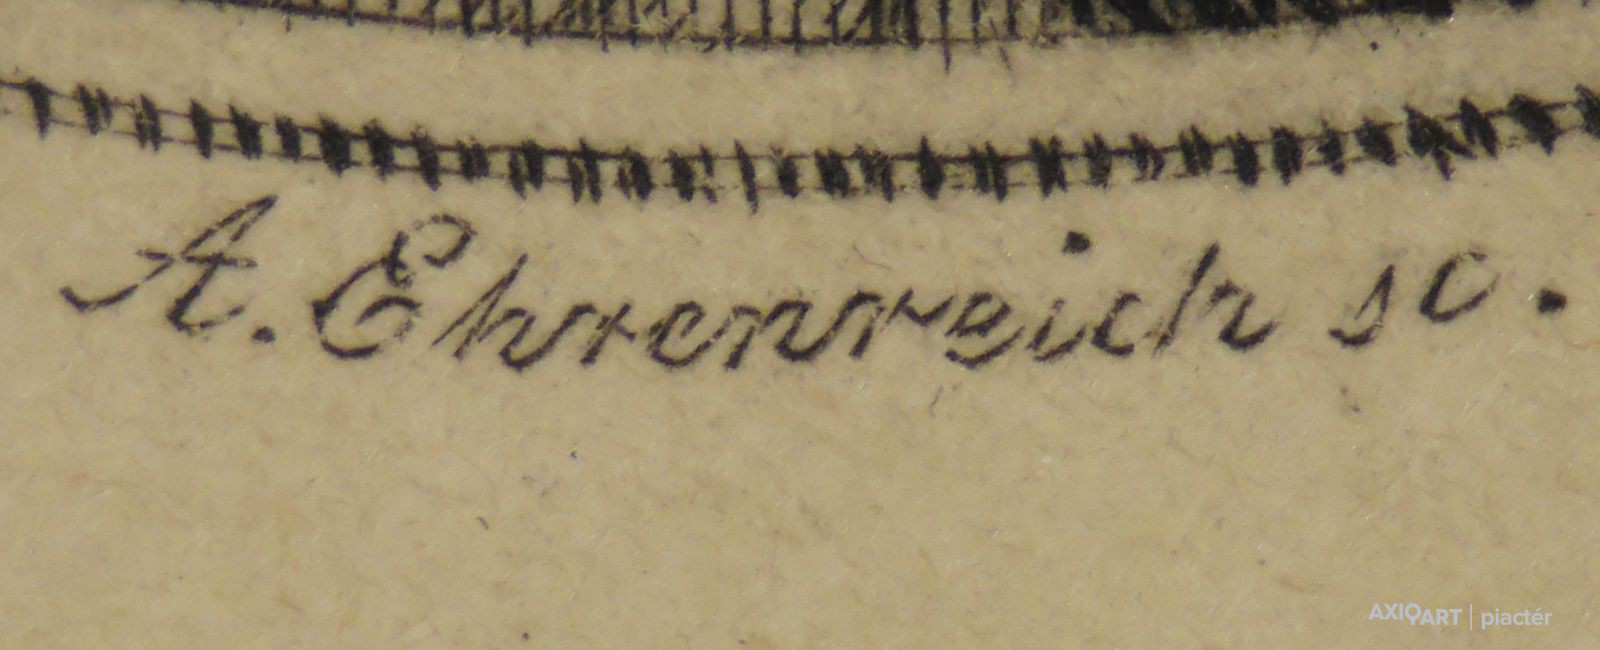 A. Ehrenreich sc.
AXIOART | piactér